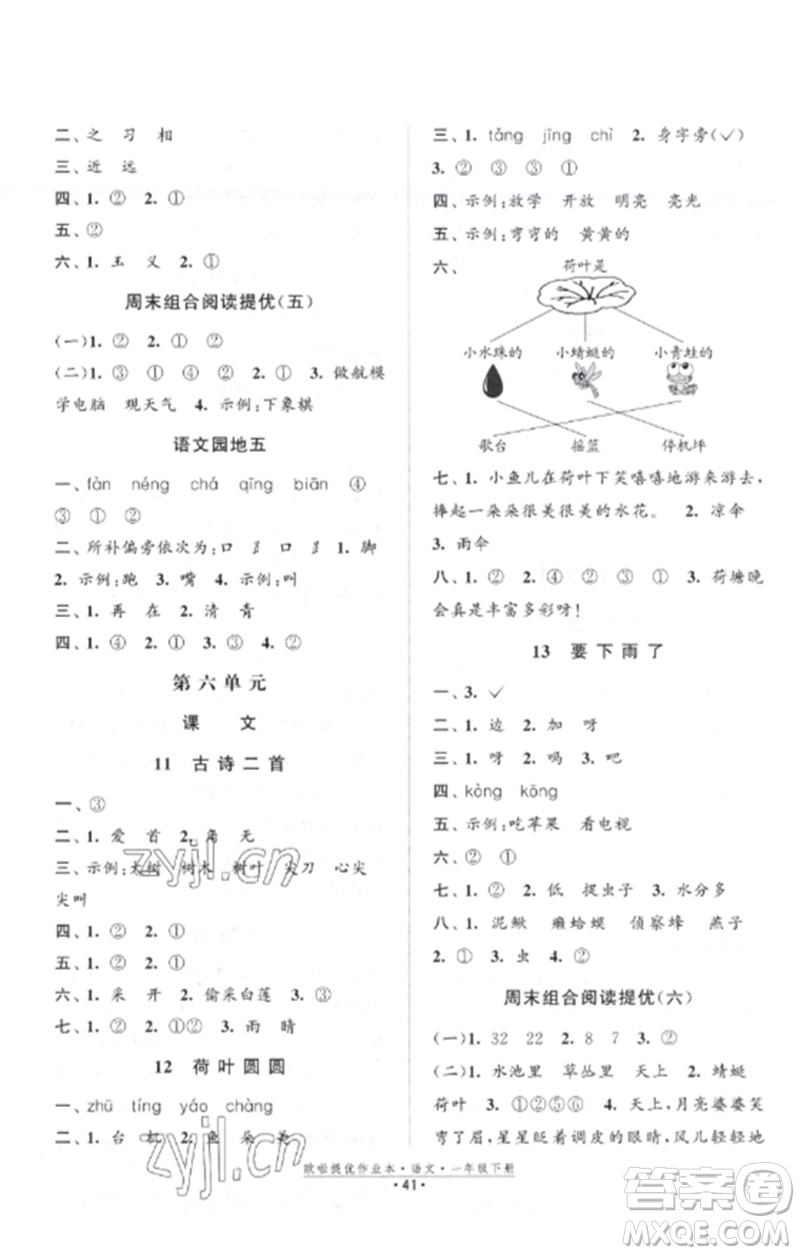 二、之　习　相
三、近　远
四、1. ②　2. ①
五、②
六、1. 玉　义　2. ①
周末组合阅读提优(五)
(一)1. ②　2. ①　②
(二)1. ③　①　④　②　2. ①　3. 做航模
学电脑　观天气　4. 示例:下象棋
语文园地五
一、fàn　néng　chá　qīng　biān　④
③　①　②
二、所补偏旁依次为:口　⻊　口　⻊　1. 脚
2. 示例:跑　3. 嘴　4. 示例:叫
三、1. 再　在　2. 清　青
四、1. ④　2. ①　3. ③　4. ②
第六单元
课　文
11　古诗二首
一、③
二、1. 爱　首　2. 角　无
三、示例:大树　树木　树叶　尖刀　心尖
尖叫
四、1. ②　2. ①
五、1. ②　2. ①
六、1. 采　开　2. 偷采白莲　3. ③
七、1. ②　2. ①②　3. 雨　晴
12　荷叶圆圆
一、zhū　tíng　yáo　chàng
二、1. 台　机　2. 鱼　朵　美
三、1. tǎng　jīng　chì　2. 身字旁(✓)
3. ②　③　③　①
四、示例:放学　开放　明亮　亮光
五、示例:穹穹的　黄黄的
六、
荷叶是
小水珠的　小蜻蜓的　小青蛙的
歌台　摇篮　停机坪
七、1. 小鱼儿在荷叶下笑嘻嘻地游来游去,
捧起一朵朵很美很美的水花。　2. 凉伞
3. 雨伞
八、1. ②　2. ④　②　③　①　3. 荷塘晚
会真是丰富多彩呀!
13　要下雨了
一、3. ✓
二、1. 边　2. 加　呀
三、1. 呀　2. 吗　3. 吧
四、kòng　kōng
五、示例:吃苹果　看电视
六、②　①
七、1. ②　2. 低　捉虫子　3. 水分多
八、1. 泥鳅　癞蛤蟆　侦察蜂　燕子
2. ①　3. 虫　4. ②
周末组合阅读提优(六)
(一)1. 32　22　2. 8　7　3. ②
(二)1. 水池里　草丛里　天上　2. 蜻蜓
荷叶　3. ①②⑤⑥　4. 天上,月亮婆婆笑
弯了眉,星星眨着调皮的眼睛,风儿轻轻地
欧啦提优作业本·语文·一年级下册
·41·
zyjl.cn
zyjl.cn
答案圈
MXQE.COM